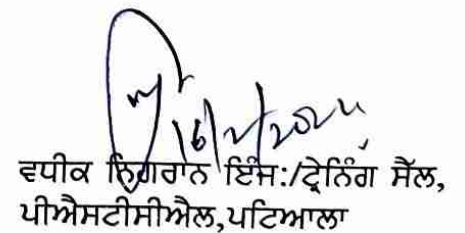 16/2/2024
ਵਧੀਕ ਨਿਗਰਾਨ ਇੰਜ:/ਟ੍ਰੇਨਿੰਗ ਸੈੱਲ,
ਪੀਐਸਟੀਸੀਐਲ,ਪਟਿਆਲਾ